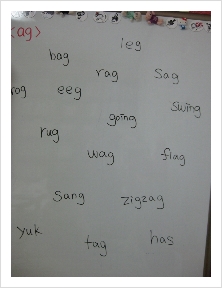 <ag>
ieg
bag
rag
sag
eeg
swing
going
rug
wag
flag
sang
zigzag
yuk
tag
has